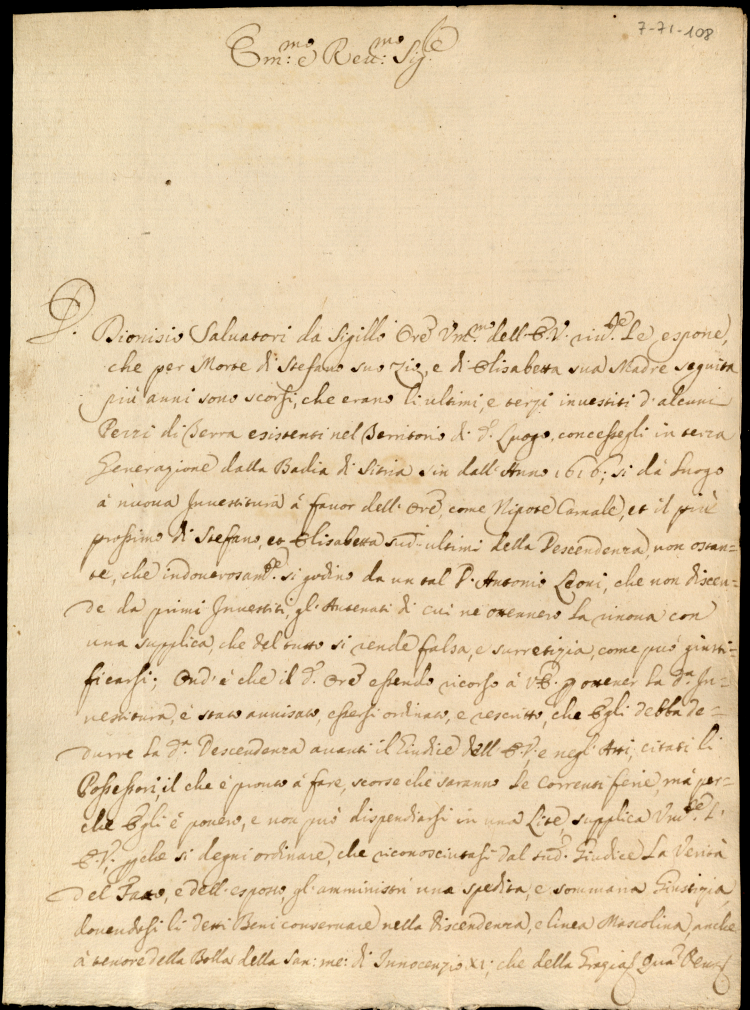 7-71-108
Em:mo e Reu:mo Sig:re
D. Dionisio Saluatori da Sigillo Ore Vm:mo dell'E.V. riu:te Le espone,
che per Morte di Stefano suo Zio, e di Elisabetta sua Madre seguita
più anni sono scorsi, che erano li ultimi, e terzi inuestiti d'alcuni
Pezzi di Terra esistenti nel Territorio di d.o Luogo, concessegli in terza
Generazione dalla Badia di Sitria sin dall'Anno 1616; si dà luogo
à nuoua Inuestitura à fauor dell'Ore, come Nipote Carnale, et il più
prossimo di Stefano, et Elisabetta sud.i ultimi della Descendenza, non ostan=
te, che indouerosam.te si godino da un tal P. Antonio Leoni, che non discen=
de da primi Inuestiti, gl'Antenati di cui ne ottennero la rinoua con
una supplica, che del tutto si rende falsa, e surretizia, come può giusti=
ficarsi; Ond'è che il d.o Ore essendo ricorso à V.E. p ottener la d.a In=
uestitura, è stato auuisato, essersi ordinato, e rescritto, che Egli debba de=
durre la d.a Descendenza auanti il Giudice dell'E.V. e negl'Atti, citati li
Possessori, il che è pronto à fare, scorse che saranno le correnti ferie, mà per=
che Egli è pouero, e non può dispendiarsi in una Lite, supplica Vm:te L'
E.V. pche si degni ordinare, che riconosciutasi dal sud.o Giudice La Verità
del Fatto, e dell'esposto, gl'amministri una spedita, e sommaria Giustizia,
douendosi li detti Beni conseruare nella discendenza, e linea Mascolina, anche
à tenore della Bolla della San: me: di Innocenzo XI; che della Grazia